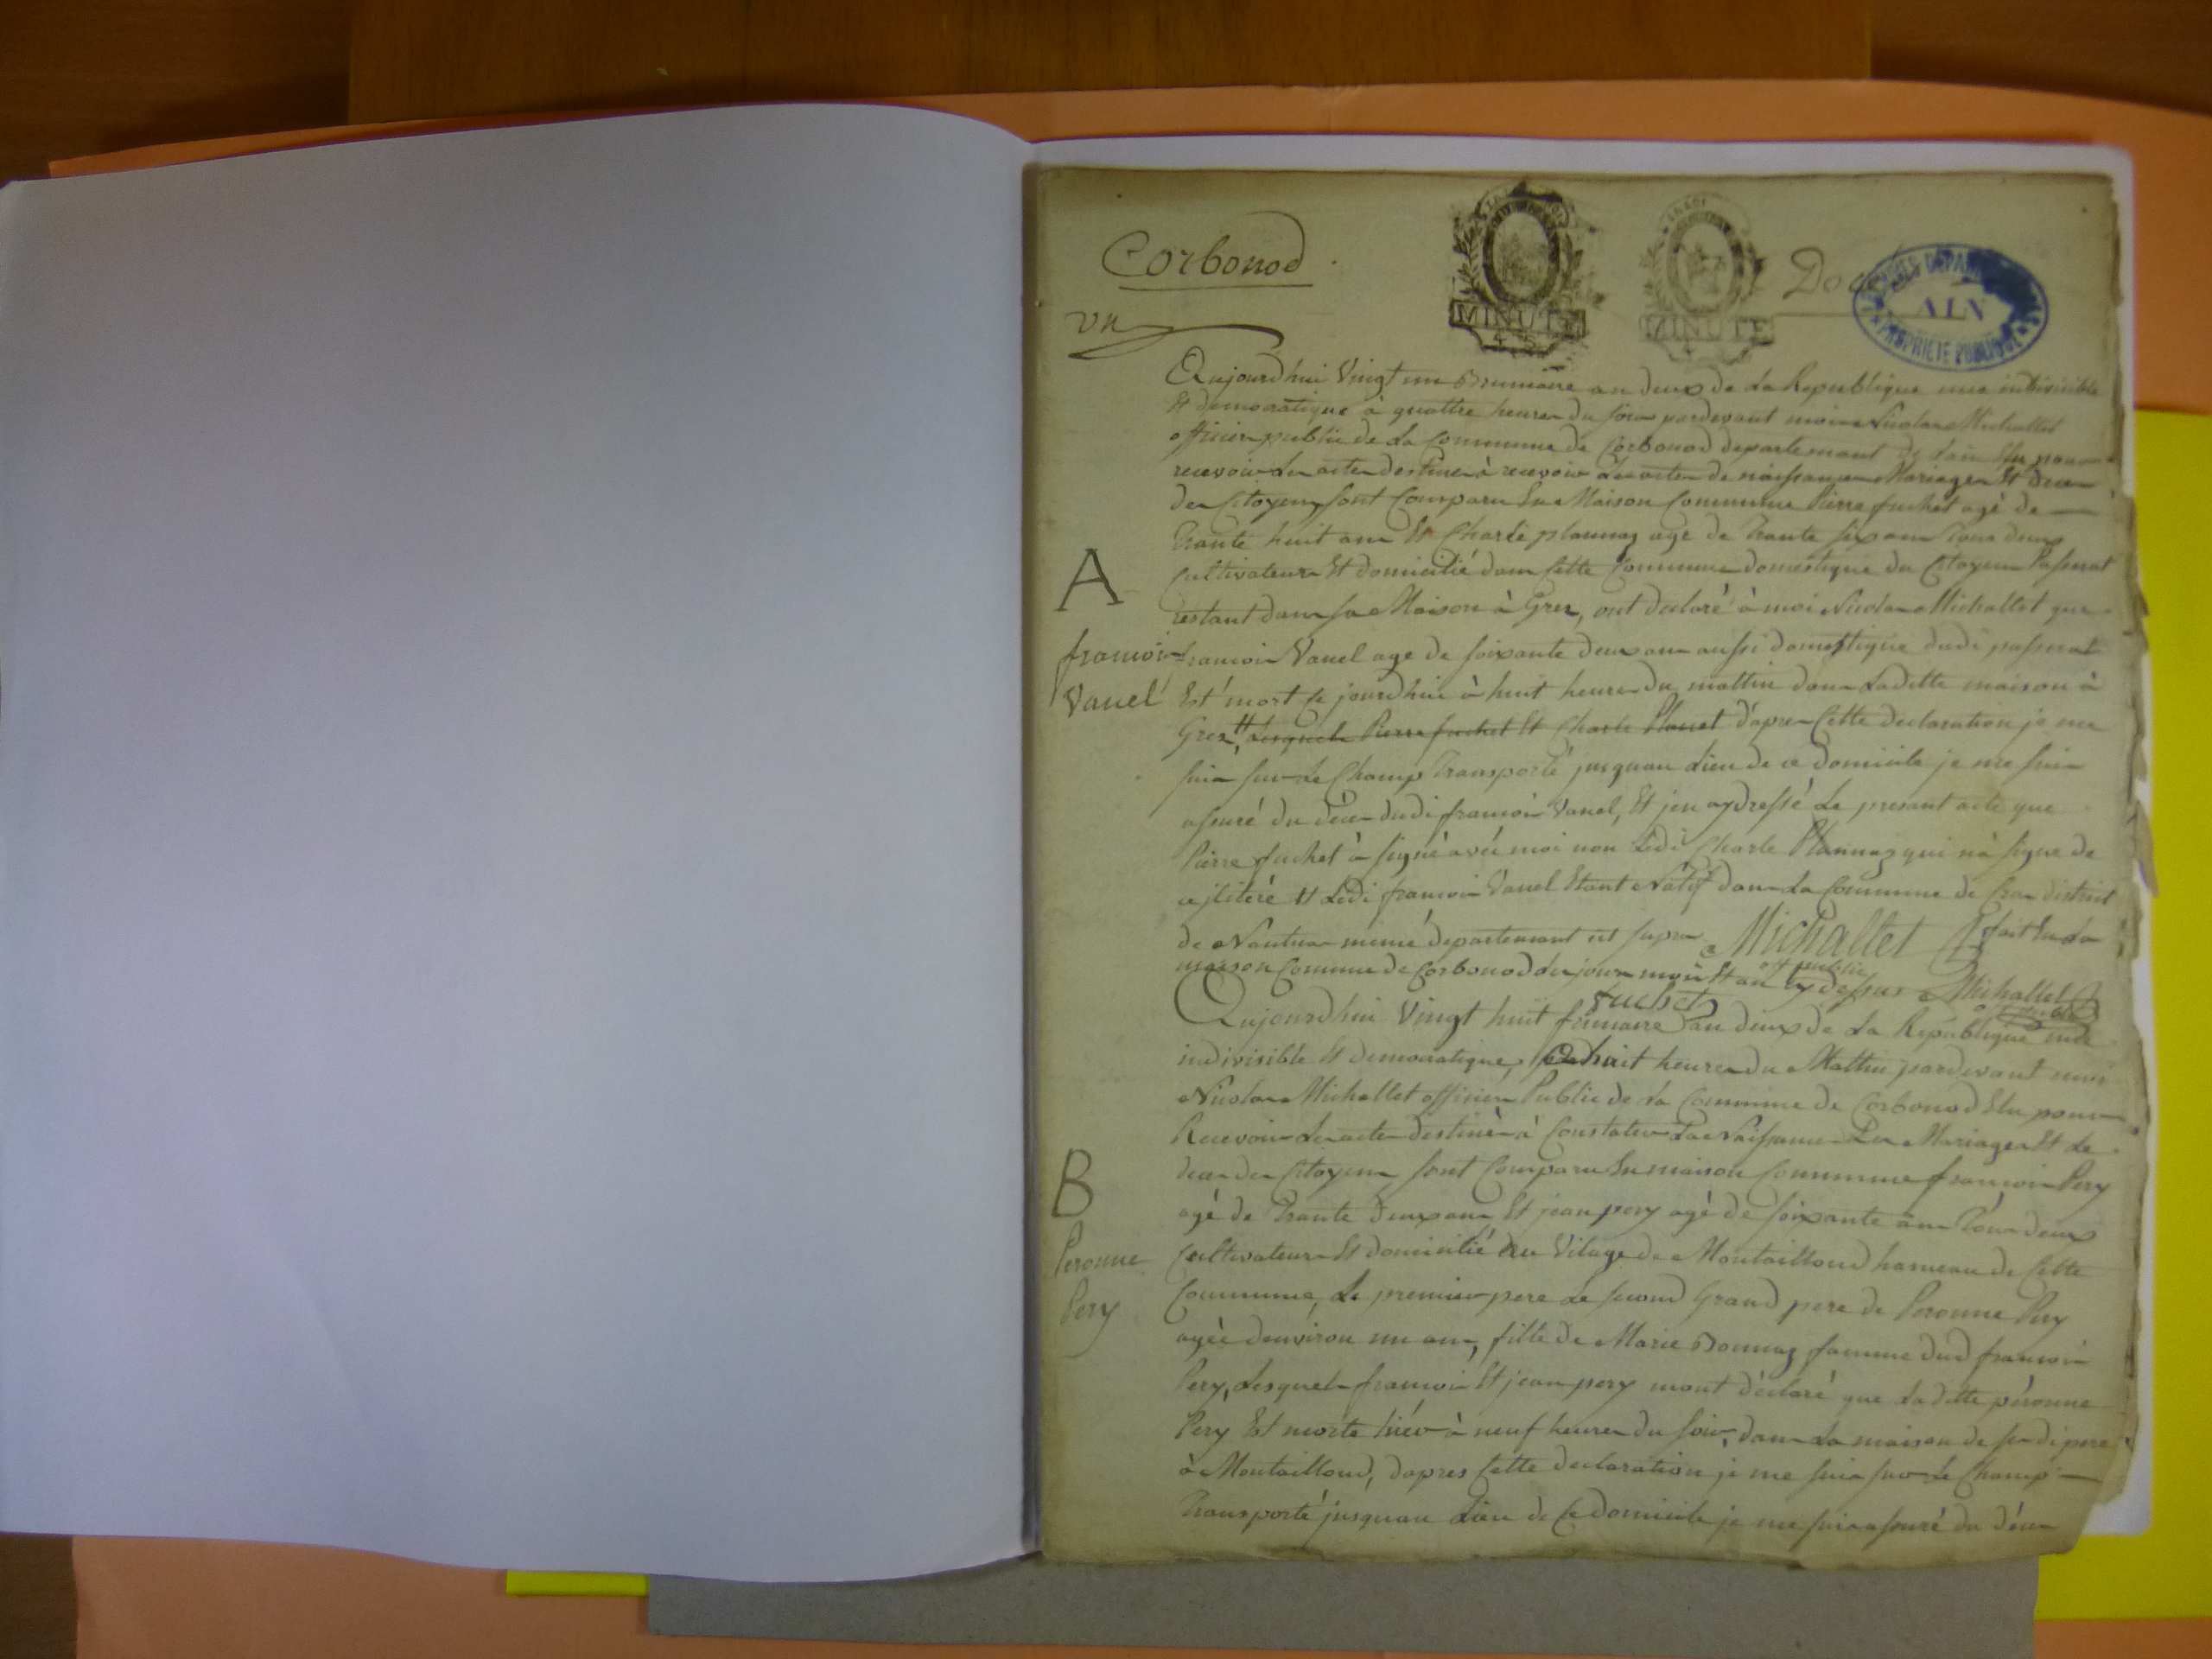 Corbonod
LA LOI
MINUTE
LA LOI
MINUTE
ARCHIVES DÉPARTEMENTALES
AIN
PROPRIÉTÉ PUBLIQUE
vn
Aujourdhui Vingt un Brumaire an deux de la Republique une indivisible
Et democratique à quattre heures du soir pardevant moi Nicolas Michallet
officier public de la Commune de Corbonod departement de Lain Elu pour
recevoir les actes destines à recevoir les actes de naissances Mariages Et deces
des Citoyens sont Comparu En Maison Commune Pierre fuchet agé de
trante huit ans Et Charle plannaz agé de trante six ans tous deux
Cultivateurs Et domicilié dans Cette Commune domestique du Citoyen Passerat
restant dans sa Maison à Grex, ont declaré à moi Nicolas Michallet que
A
francois
Vauel
francois Vauel age de soixante deux ans aussi domestique dudi passerat
Est mort ce jourdhui à huit heures du mattin dans Laditte maison à
Grex, Lesquels Pierre fuchet Et Charle Planet dapres Cette declaration je me
suis sur Le Champ transporté jusquau Lieu de ce domicile je me suis
assuré du déces dudi francois Vauel, Et jen ay dressé Le presant acte que
Pierre fuchet à signé avec moi non Ledi Charle Plannaz qui nà signe de
ce jlitéré Et Ledi francois Vauel Etant Natif dans La Commune de Cras district
de Nantua meme departement ut supra Michallet fait En La
off public
maison Comune de Corbonod les jour mois Et an cy dessus Michallet
fuchet
Aujourdhui Vingt huit frimaire an deux de La Republique une
indivisible Et democratique, à huit heures du Mattin pardevant moi
Nicolas Michallet officier Public de La Commune de Corbonod Elu pour
Recevoir Les actes destinés à Constater Les Naissances Les Mariages Et Le
deces des Citoyens sont Comparu En maison Commune francois Pery
B
Peronne
Pery
agé de trante deux ans Et jean pery agé de soixante ans tous deux
Cultivateurs Et domicilié au Vilage de Montailloud hameau de Cette
Commune, Le premier pere Le second Grand pere de Peronne Pery
agée denviron un ans, fille de Marie Bonnaz famme dud francois
Pery, Lesquels francois Et jean pery mont déclaré que Laditte péronne
Pery Est morte hiér à neuf heures du soir, dans La maison de sondi pere
à Montailloud, dapres Cette declaration je me suis sur Le Champ
transporté jusquau Lieu de Ce domicile je me suis assuré du déces